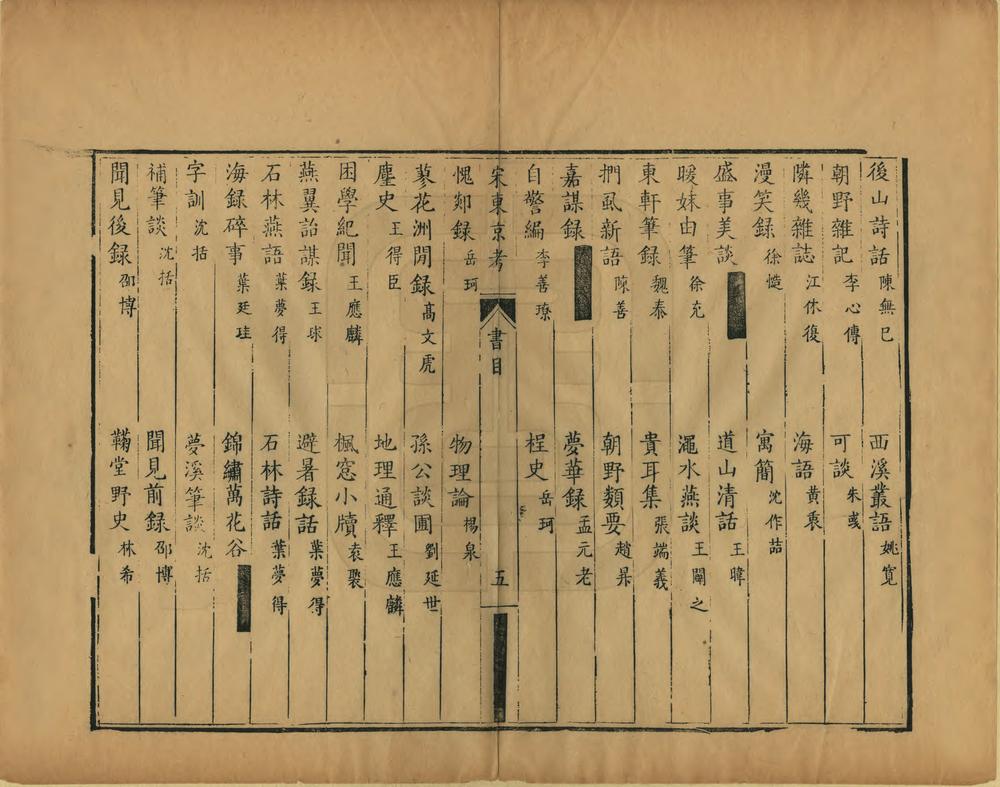 後山詩話 陳無已 西溪叢語 姚寬
朝野雜記 李心傳 可談 朱彧
隣幾雜誌 江休復 海語 黃衷
漫笑録 徐慥 寓簡 沈作喆
盛事美談 道山清話 王暐
暖姝由筆 徐充 澠水燕談 王闢之
東軒筆録 魏泰 貴耳集 張端義
捫虱新語 陳善 朝野類要 趙昇
嘉謀録 夢華録 孟元老
自警編 李善璙 桯史 岳珂
宋東京考 書目 五
愧郯録 岳珂 物理論 楊泉
蓼花洲閒録 高文虎 孫公談圃 劉延世
麈史 王得臣 地理通釋 王應麟
困學紀聞 王應麟 楓窓小牘 袁褧
燕翼詒謀録 王球 避暑録話 葉夢得
石林燕語 葉夢得 石林詩話 葉夢得
海録碎事 葉廷珪 錦繡萬花谷
字訓 沈括 夢溪筆談 沈括
補筆談 沈括 聞見前録 邵博
聞見後録 邵博 鞠堂野史 林希